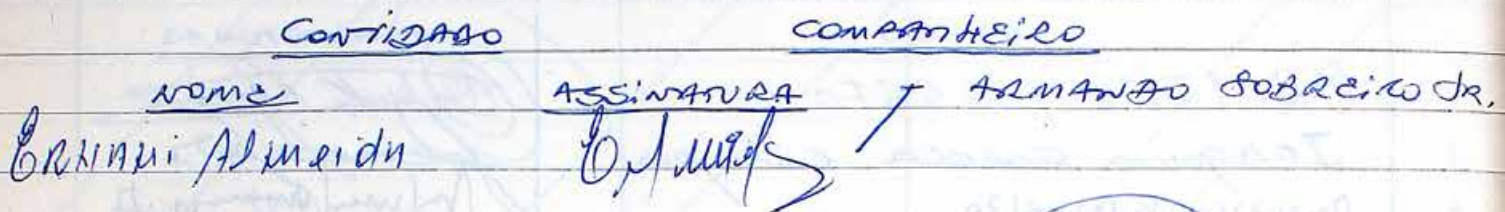 CONVIDADO COMPANHEIRO
NOME ASSINATURA / ARMANDO SOBREIRO JR.
ERNANI Almeida